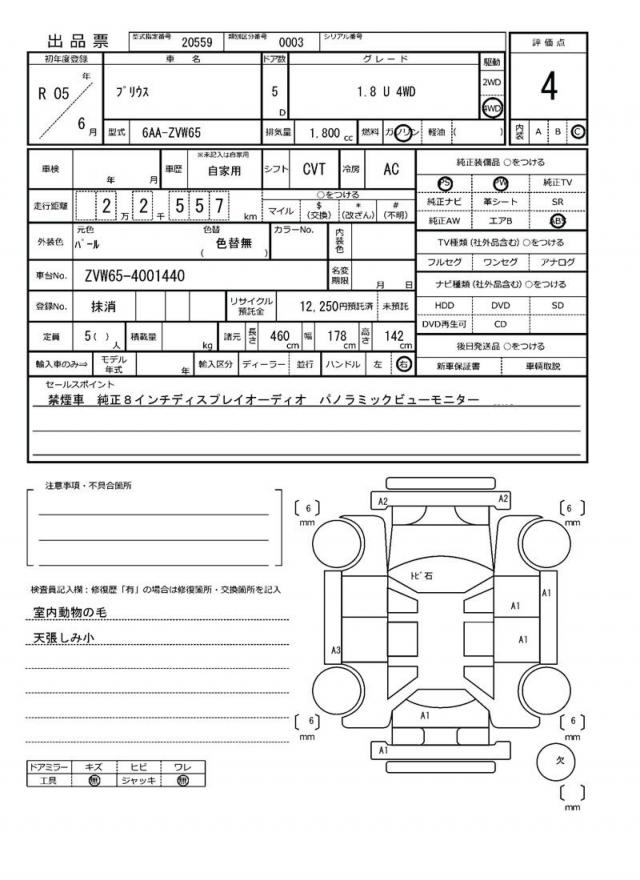 出品票 型式指定番号 20559 類別区分番号 0003 シリアル番号
評価点
4
内装 A B C
初年度登録 車名 ドア数 グレード 駆動
R 05 年 6 月
プリウス 5 D 1.8 U 4WD
2WD
4WD
型式 6AA-ZVW65 排気量 1.800 cc 燃料 ガソリン 軽油 ( )
車検 年 月 車歴 ※未記入は自家用 自家用 シフト CVT 冷房 AC
走行距離 2 万 2 千 5 5 7 km
○をつける
マイル $ (交換) * (改ざん) # (不明)
外装色 元色 パール 色替 ( 色替無 ) カラーNo. 内装色
車台No. ZVW65-4001440 名変期限 月 日
登録No. 抹消 リサイクル預託金 12,250円預託済 未預託
定員 5 ( ) 人 積載量 kg 諸元 長さ 460 cm 幅 178 cm 高さ 142 cm
輸入車のみ⇒ モデル年式 年 輸入区分 ディーラー 並行 ハンドル 左 右
純正装備品 ○をつける
PS PW 純正TV
純正ナビ 革シート SR
純正AW エアB ABS
TV種類 (社外品含む) ○をつける
フルセグ ワンセグ アナログ
ナビ種類 (社外品含む) ○をつける
HDD DVD SD
DVD再生可 CD
後日発送品 ○をつける
新車保証書 車輌取説
セールスポイント
禁煙車 純正8インチディスプレイオーディオ パノラミックビューモニター
注意事項・不具合箇所
検査員記入欄:修復歴「有」の場合は修復箇所・交換箇所を記入
室内動物の毛
天張しみ小
ドアミラー キズ ヒビ ワレ
工具 無 ジャッキ 無
[ 6 ] mm
A2 A2
[ 6 ] mm
トビ石
A1
A1
A3
A1
A1
[ 6 ] mm
A1
[ 6 ] mm
欠
[ ] mm